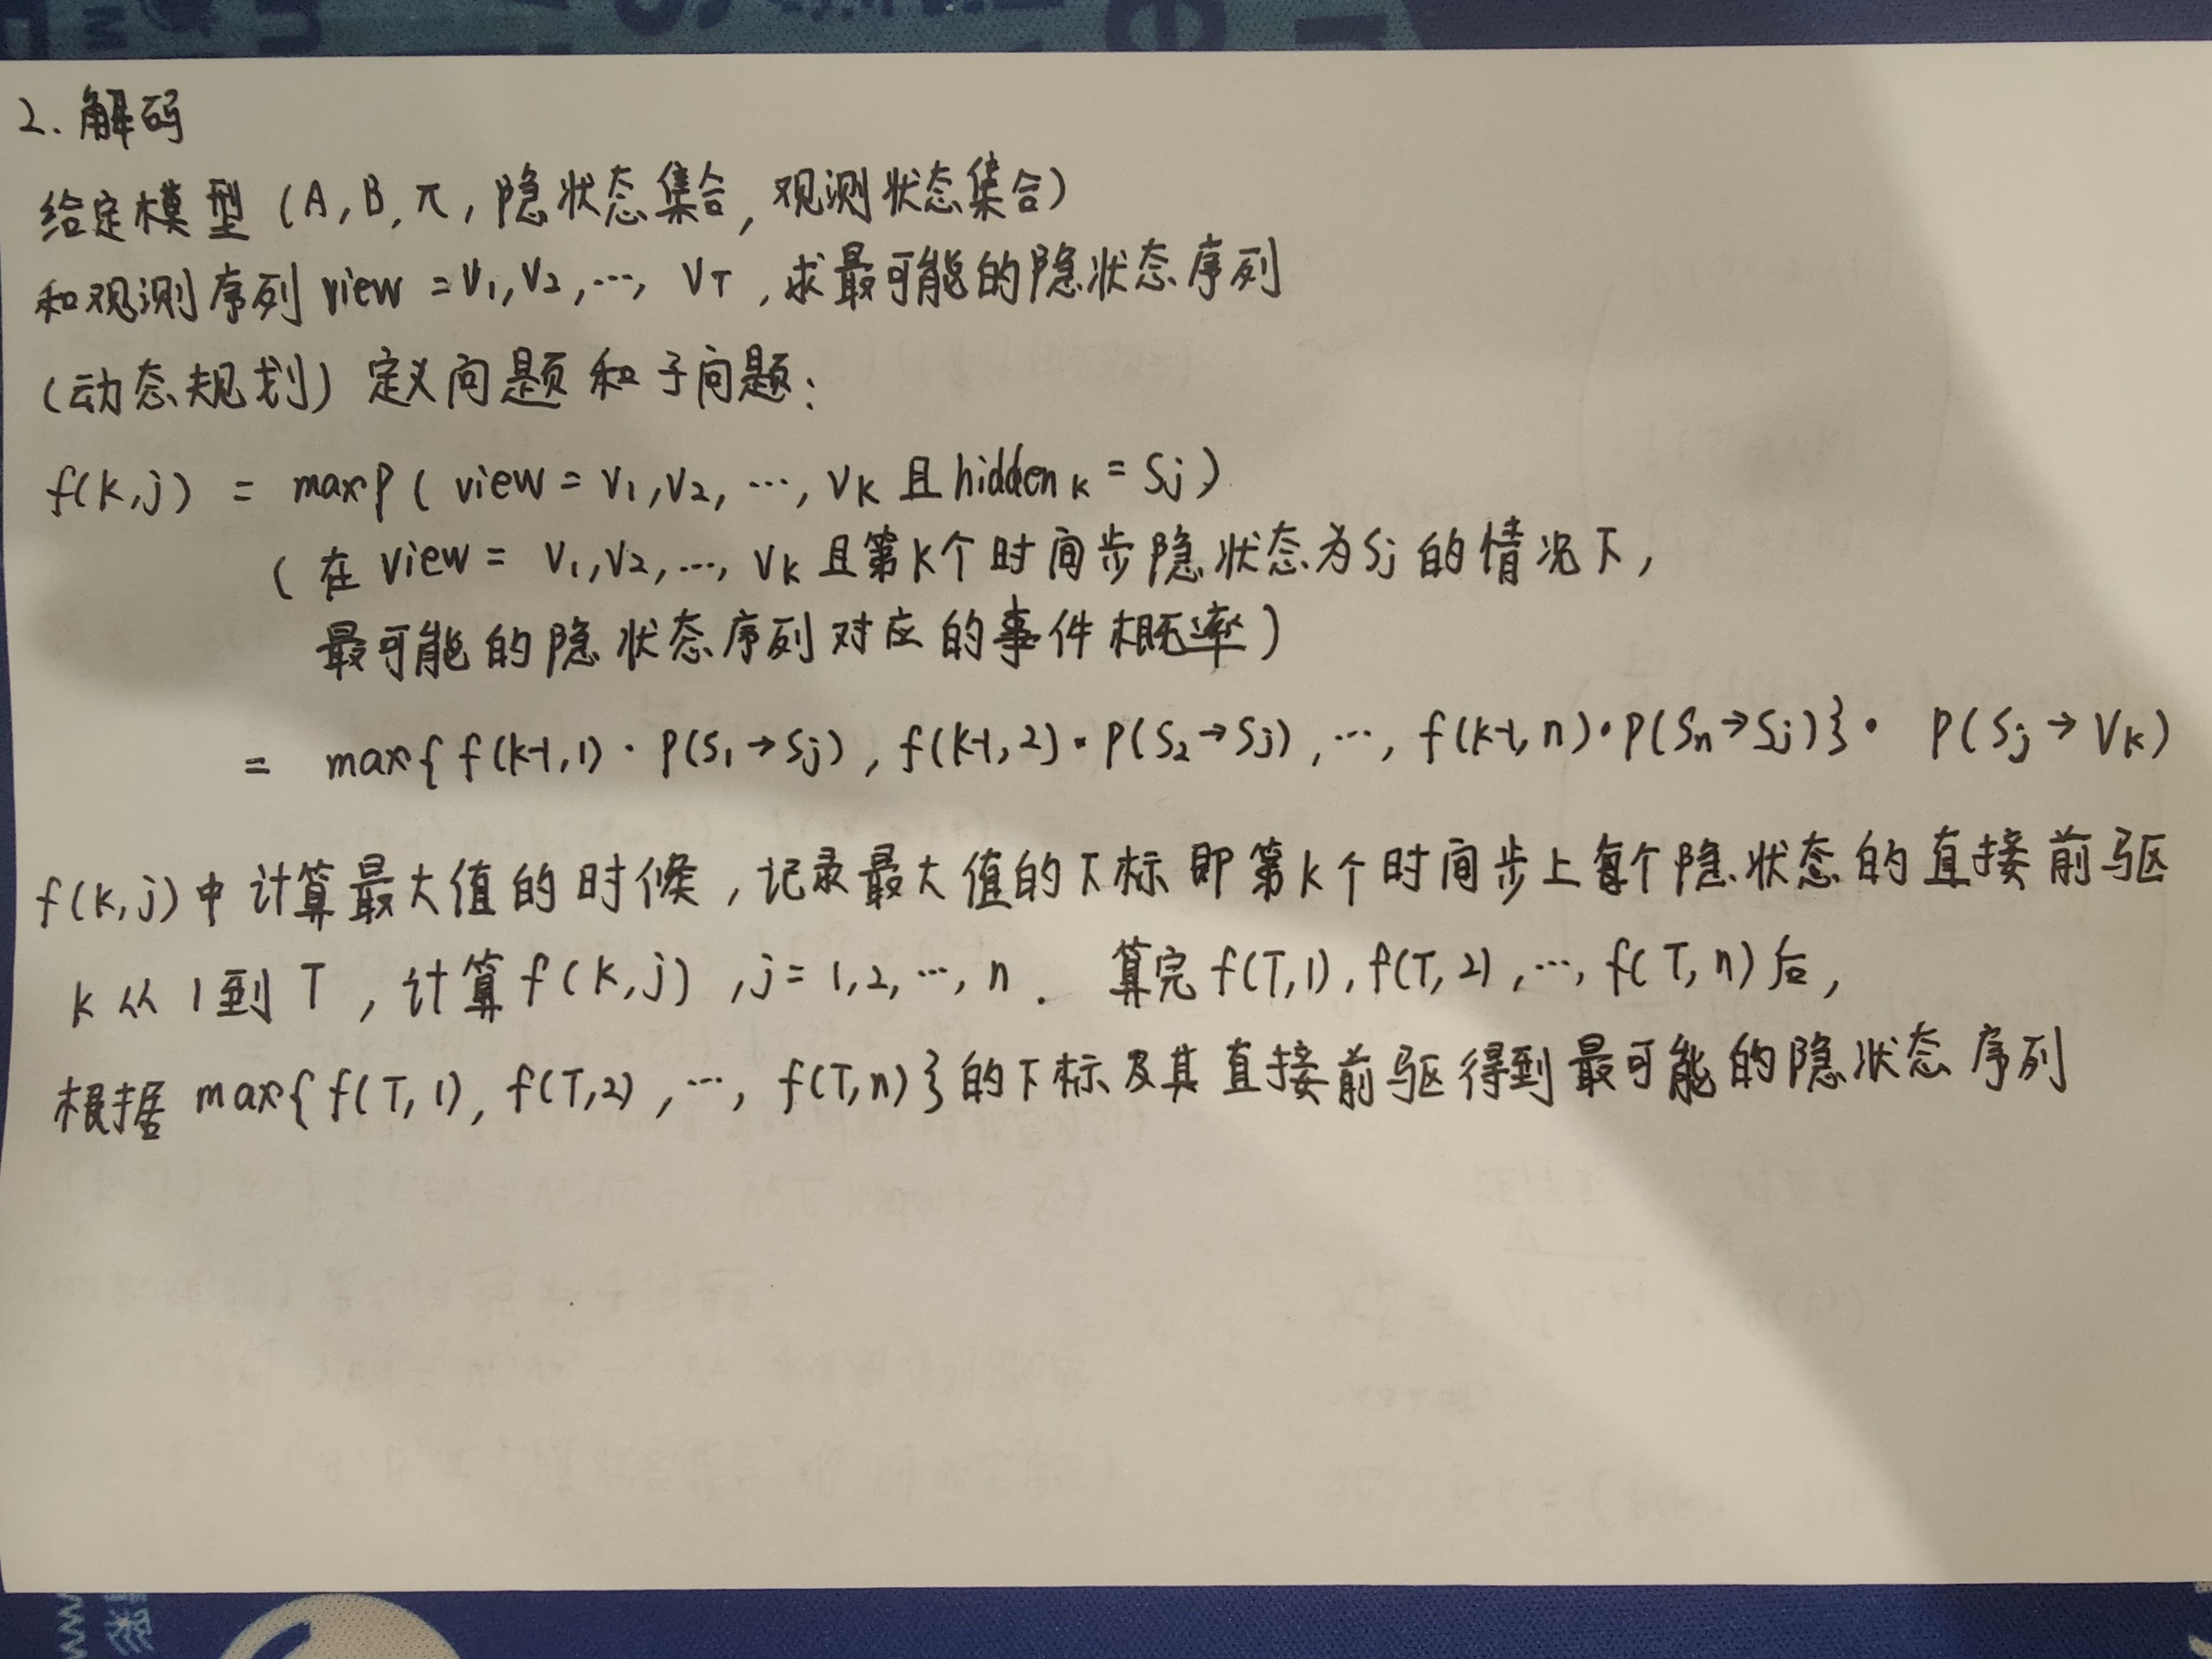 2. 解码
给定模型 (A, B, π, 隐状态集合, 观测状态集合)
和观测序列 view = V₁, V₂, ⋯, V_T , 求最可能的隐状态序列
(动态规划) 定义问题和子问题:
f(k,j) = max P ( view = V₁,V₂, ⋯, V_K 且 hidden_K = Sj )
( 在 view = V₁,V₂, ⋯, V_K 且第K个时间步隐状态为Sj的情况下,
最可能的隐状态序列对应的事件概率)
= max{ f(k-1,1) · P(S₁→Sj), f(k-1,2) · P(S₂→Sj), ⋯, f(k-1,n) · P(Sn→Sj)} · P(Sj→V_K)
f(k,j)中计算最大值的时候, 记录最大值的下标 即第k个时间步上每个隐状态的直接前驱
k从1到T, 计算f(k,j), j=1,2,⋯,n. 算完f(T,1), f(T,2), ⋯, f(T,n)后,
根据 max{ f(T,1), f(T,2), ⋯, f(T,n)}的下标及其直接前驱得到最可能的隐状态序列